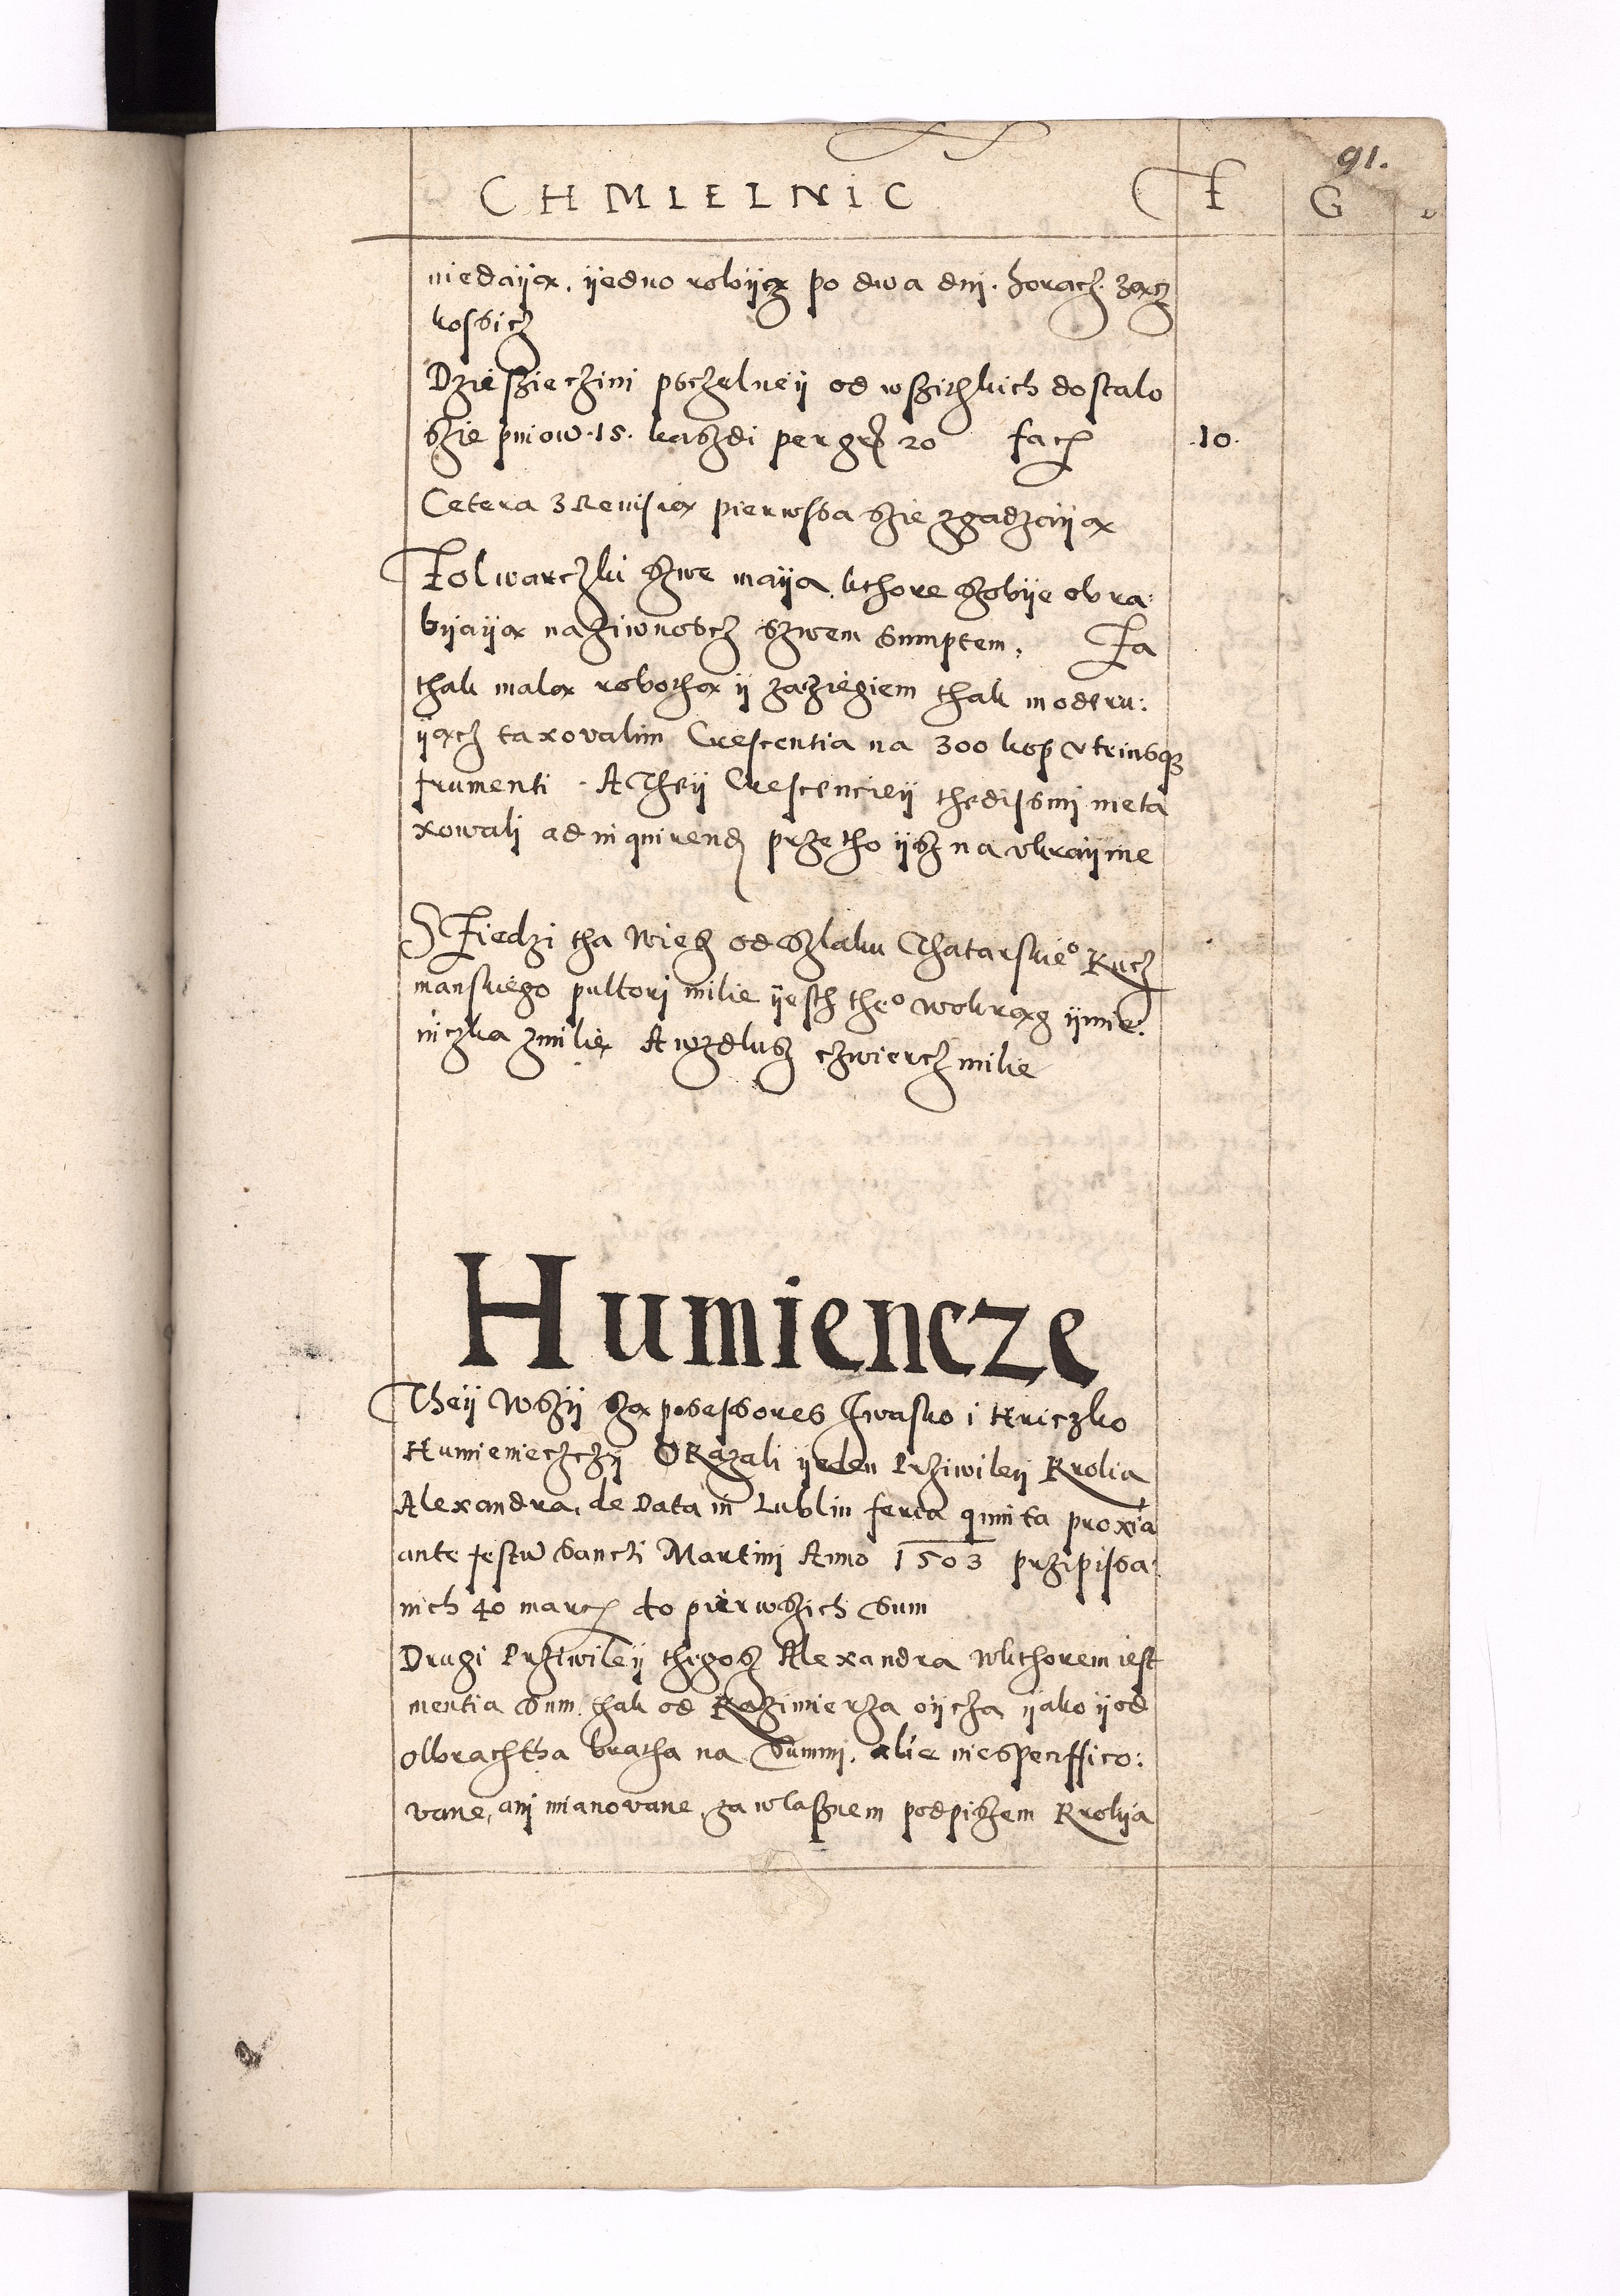 91.
CHMIELNIC F G
niedaiją, ijedno robiją po dwa dnj. zoracz. zącz
kossicz
Dzieszieczini psczelneij od wszitzkich dostalo
szie pniow .15. kaszdi per gr 20 fac .10.
Cetera z Revisią pierwssa szie zgadzaiją
Folwarczki szwe maija, kthore szobije obra:
bijaiją nażiwnoscz szwem sumptem, Ta
thak malą robothą ij zazięgiem thak moderu:
ijącz taxovalim Crescentia na 300 kop utriusque
frumenti. A Theij Crescencieij thedissmj nieta
xowalj ad inquirend przetho ijsz na ukraijnie
Siedzi tha Wiesz od Szlaku Thatarskieo Kucz
manskiego pultorj milie ijesth theo wokrąg ijmie:
niczka zmilię A wzdlusz czwiercz milie
Humiencze
Theij Wszij są possessores Iwasko i Hriczko
Humienieczczij Okazali ijeden Prziwileij Krolia
Alexandra, de Data in Lublin feria quinta proxia
ante festu Sancti Martinj Anno 1503 przipissa:
nich 40 marc do pierwszich Sum
Drugi Prziwileij thegosz Alexandra wkthorem iest
mentia Sum. thak od Kazimierza oijcza ijako ij od
olbrachtha bratha na Summj. alie niespeciffico:
vane, anj mianovane, zawlasznem podpiszem Krolija